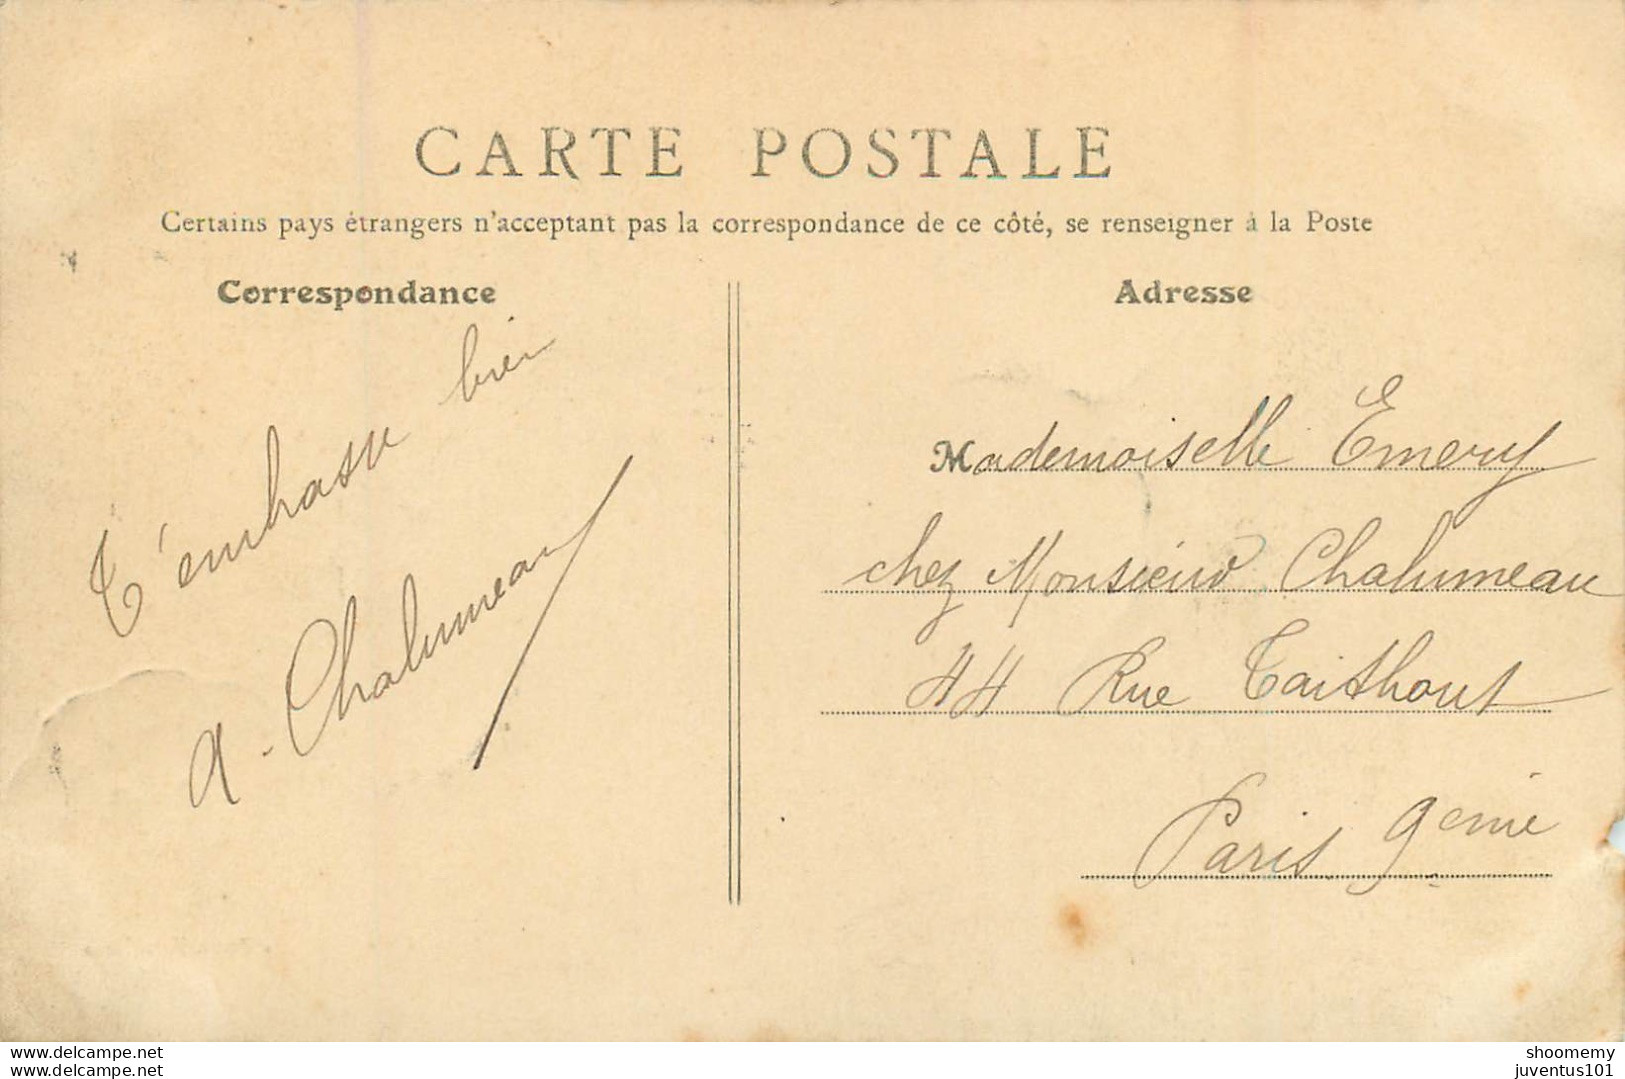 CARTE POSTALE
Certains pays étrangers n'acceptant pas la correspondance de ce côté, se renseigner à la Poste
Correspondance
T'embrasse bien
A. Chalumeau
Adresse
Mademoiselle Emery
chez Monsieur Chalumeau
44 Rue Taithout
Paris 9eme
www.delcampe.net
www.delcampe.net
shoomemy
juventus101